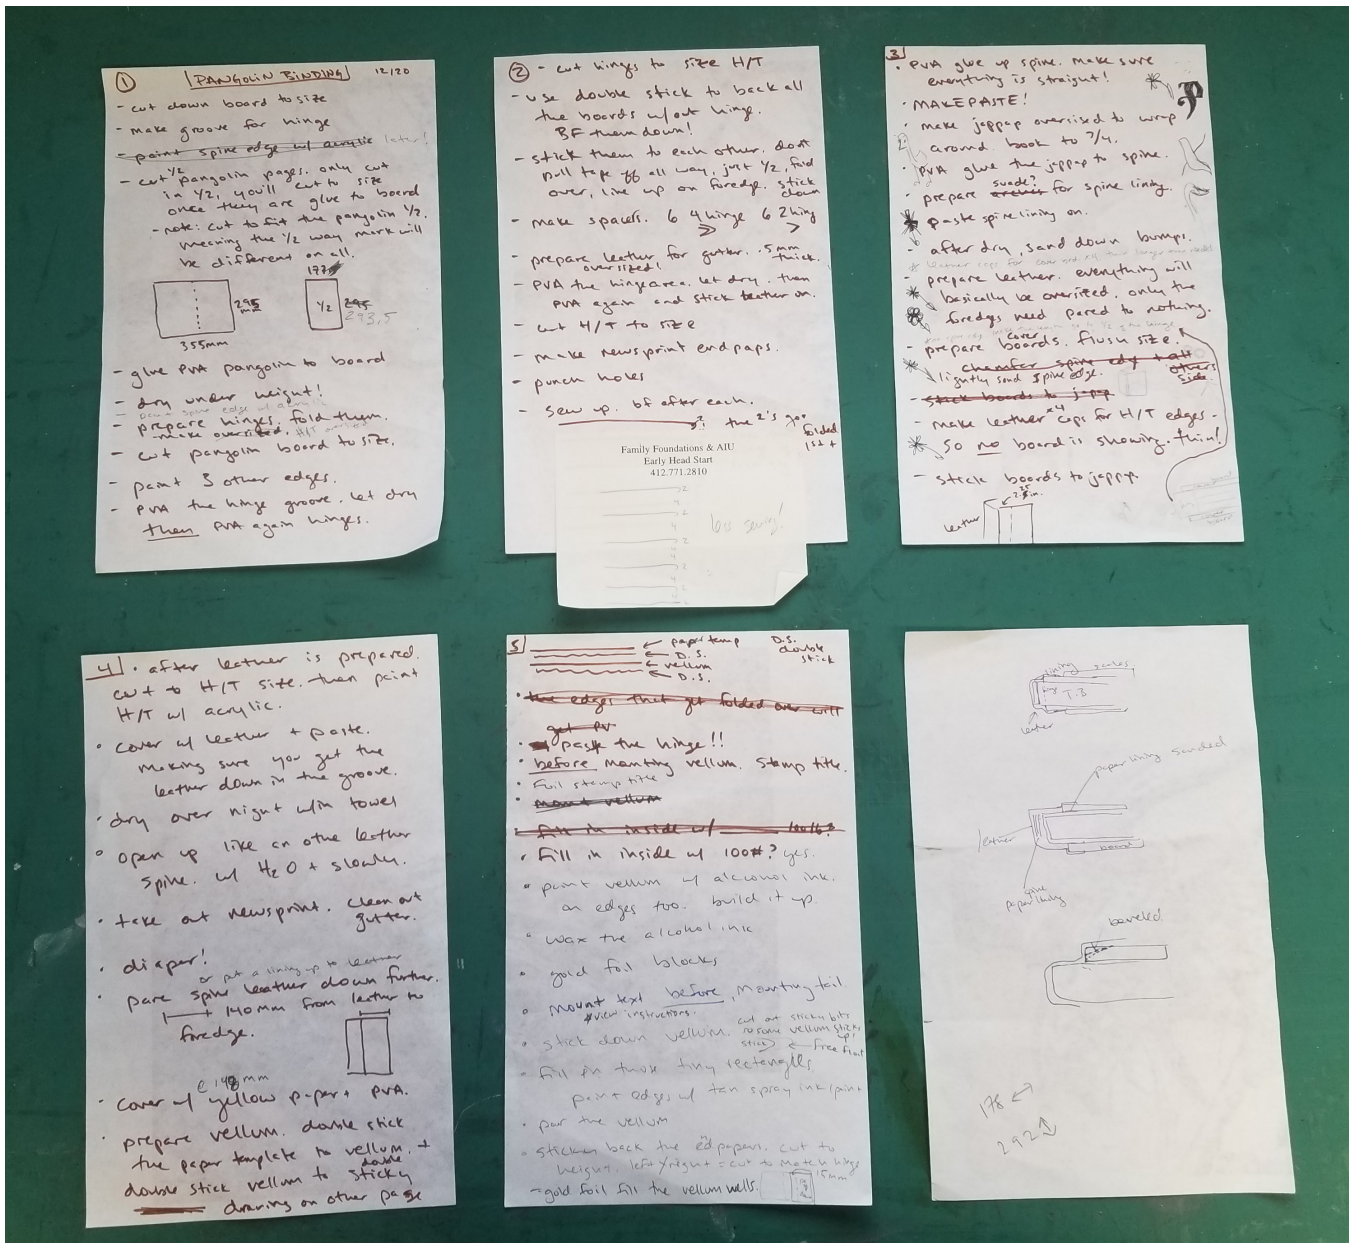 1 PANGOLIN BINDING 12/20
- cut down board to size
- make groove for hinge
- paint spine edge w/ acrylic later!
- cut 1/2 pangolin pages. only cut
in 1/2, you'll cut to size
once they are glue to board
- note: cut to fit the pangolin 1/2.
meaning the 1/2 way mark will
be different on all.
177
295
mm
1/2
295
293,5
355mm
- glue PVA pangolin to board
- dry under weight!
- paint spine edge w/ acrylic
- prepare hinges, fold them.
- make oversized. H/T oversized
- cut pangolin board to size.
- paint 3 other edges.
- PVA the hinge groove. let dry
then PVA again hinges.
2 - cut hinges to size H/T
- use double stick to back all
the boards w/out hinge.
BF them down!
- stick them to each other. dont
pull tape off all way, just 1/2, fold
over, line up on foredge. stick
down
- make spacers. 6 4 hinge 6 2 hing
- prepare leather for gutter. .5mm
oversized! thick.
- PVA the hinge area. let dry. then
PVA again and stick leather on.
- cut H/T to size
- make newsprint endpaps.
- punch holes
- sew up. bf after each.
the 2's go
folded
1st +
Family Foundations & AIU
Early Head Start
412.771.2810
2
4
2
4
2
4
2
4
2
4
2
less sewing!
3
• PVA glue up spine. Make sure
everything is straight!
• MAKE PASTE!
• make jappap oversised to wrap
around book to 3/4.
• PVA glue the jappap to spine.
• prepare suede? for spine lining.
• paste spine lining on.
• after dry, sand down bumps.
• prepare leather. everything will
basically be oversized. only the
foredges need pared to nothing.
- prepare cover boards. flush size.
chamfer spine edg + all
others
side
lightly sand spine edge.
- stick boards to japp
- make leather x4 caps for H/T edges -
so no board is showing. thin!
- stick boards to jappap.
leather
4 • after leather is prepared.
cut to H/T size. then paint
H/T w/ acrylic.
• cover w/ leather + paste.
making sure you get the
leather down in the groove.
• dry over night w/in towel
• open up like an othe leather
spine. w/ H2O + slowly.
• take out newsprint. clean out
gutter.
• diaper!
or put a lining up to leather
• pare spine leather down further.
140mm from leather to
foredge.
@ 148 mm
• cover w/ yellow paper + PVA.
• prepare vellum. double stick
the paper template to vellum. +
double stick vellum to double sticky
drawing on other page
5
paper temp
D.S.
vellum
D.S.
D.S.
double
stick
• the edges that get folded over will
get PV
• paste the hinge!!
• before mounting vellum. Stamp title.
• Foil stamp title
• mount vellum
• fill in inside w/ 100lb?
• fill in inside w/ 100#? yes.
• paint vellum w/ alcohol ink.
on edges too. build it up.
• wax the alcohol ink
• gold foil blocks
• mount text before mounting tail.
*view instructions.
• stick down vellum. cut out sticky bits
so some vellum sticks
up!
← free float
• fill in those tiny rectangles.
paint edges w/ tan spray ink/paint
• par the vellum
• sticker back the edpapers. cut to
height. left/right = cut to match hinge
15mm
- gold foil fill the vellum wells.
lining scales
T.B
leather
paper lining sanded
leather
board
spine
paper lining
beveled
178 ↔
292 ↕